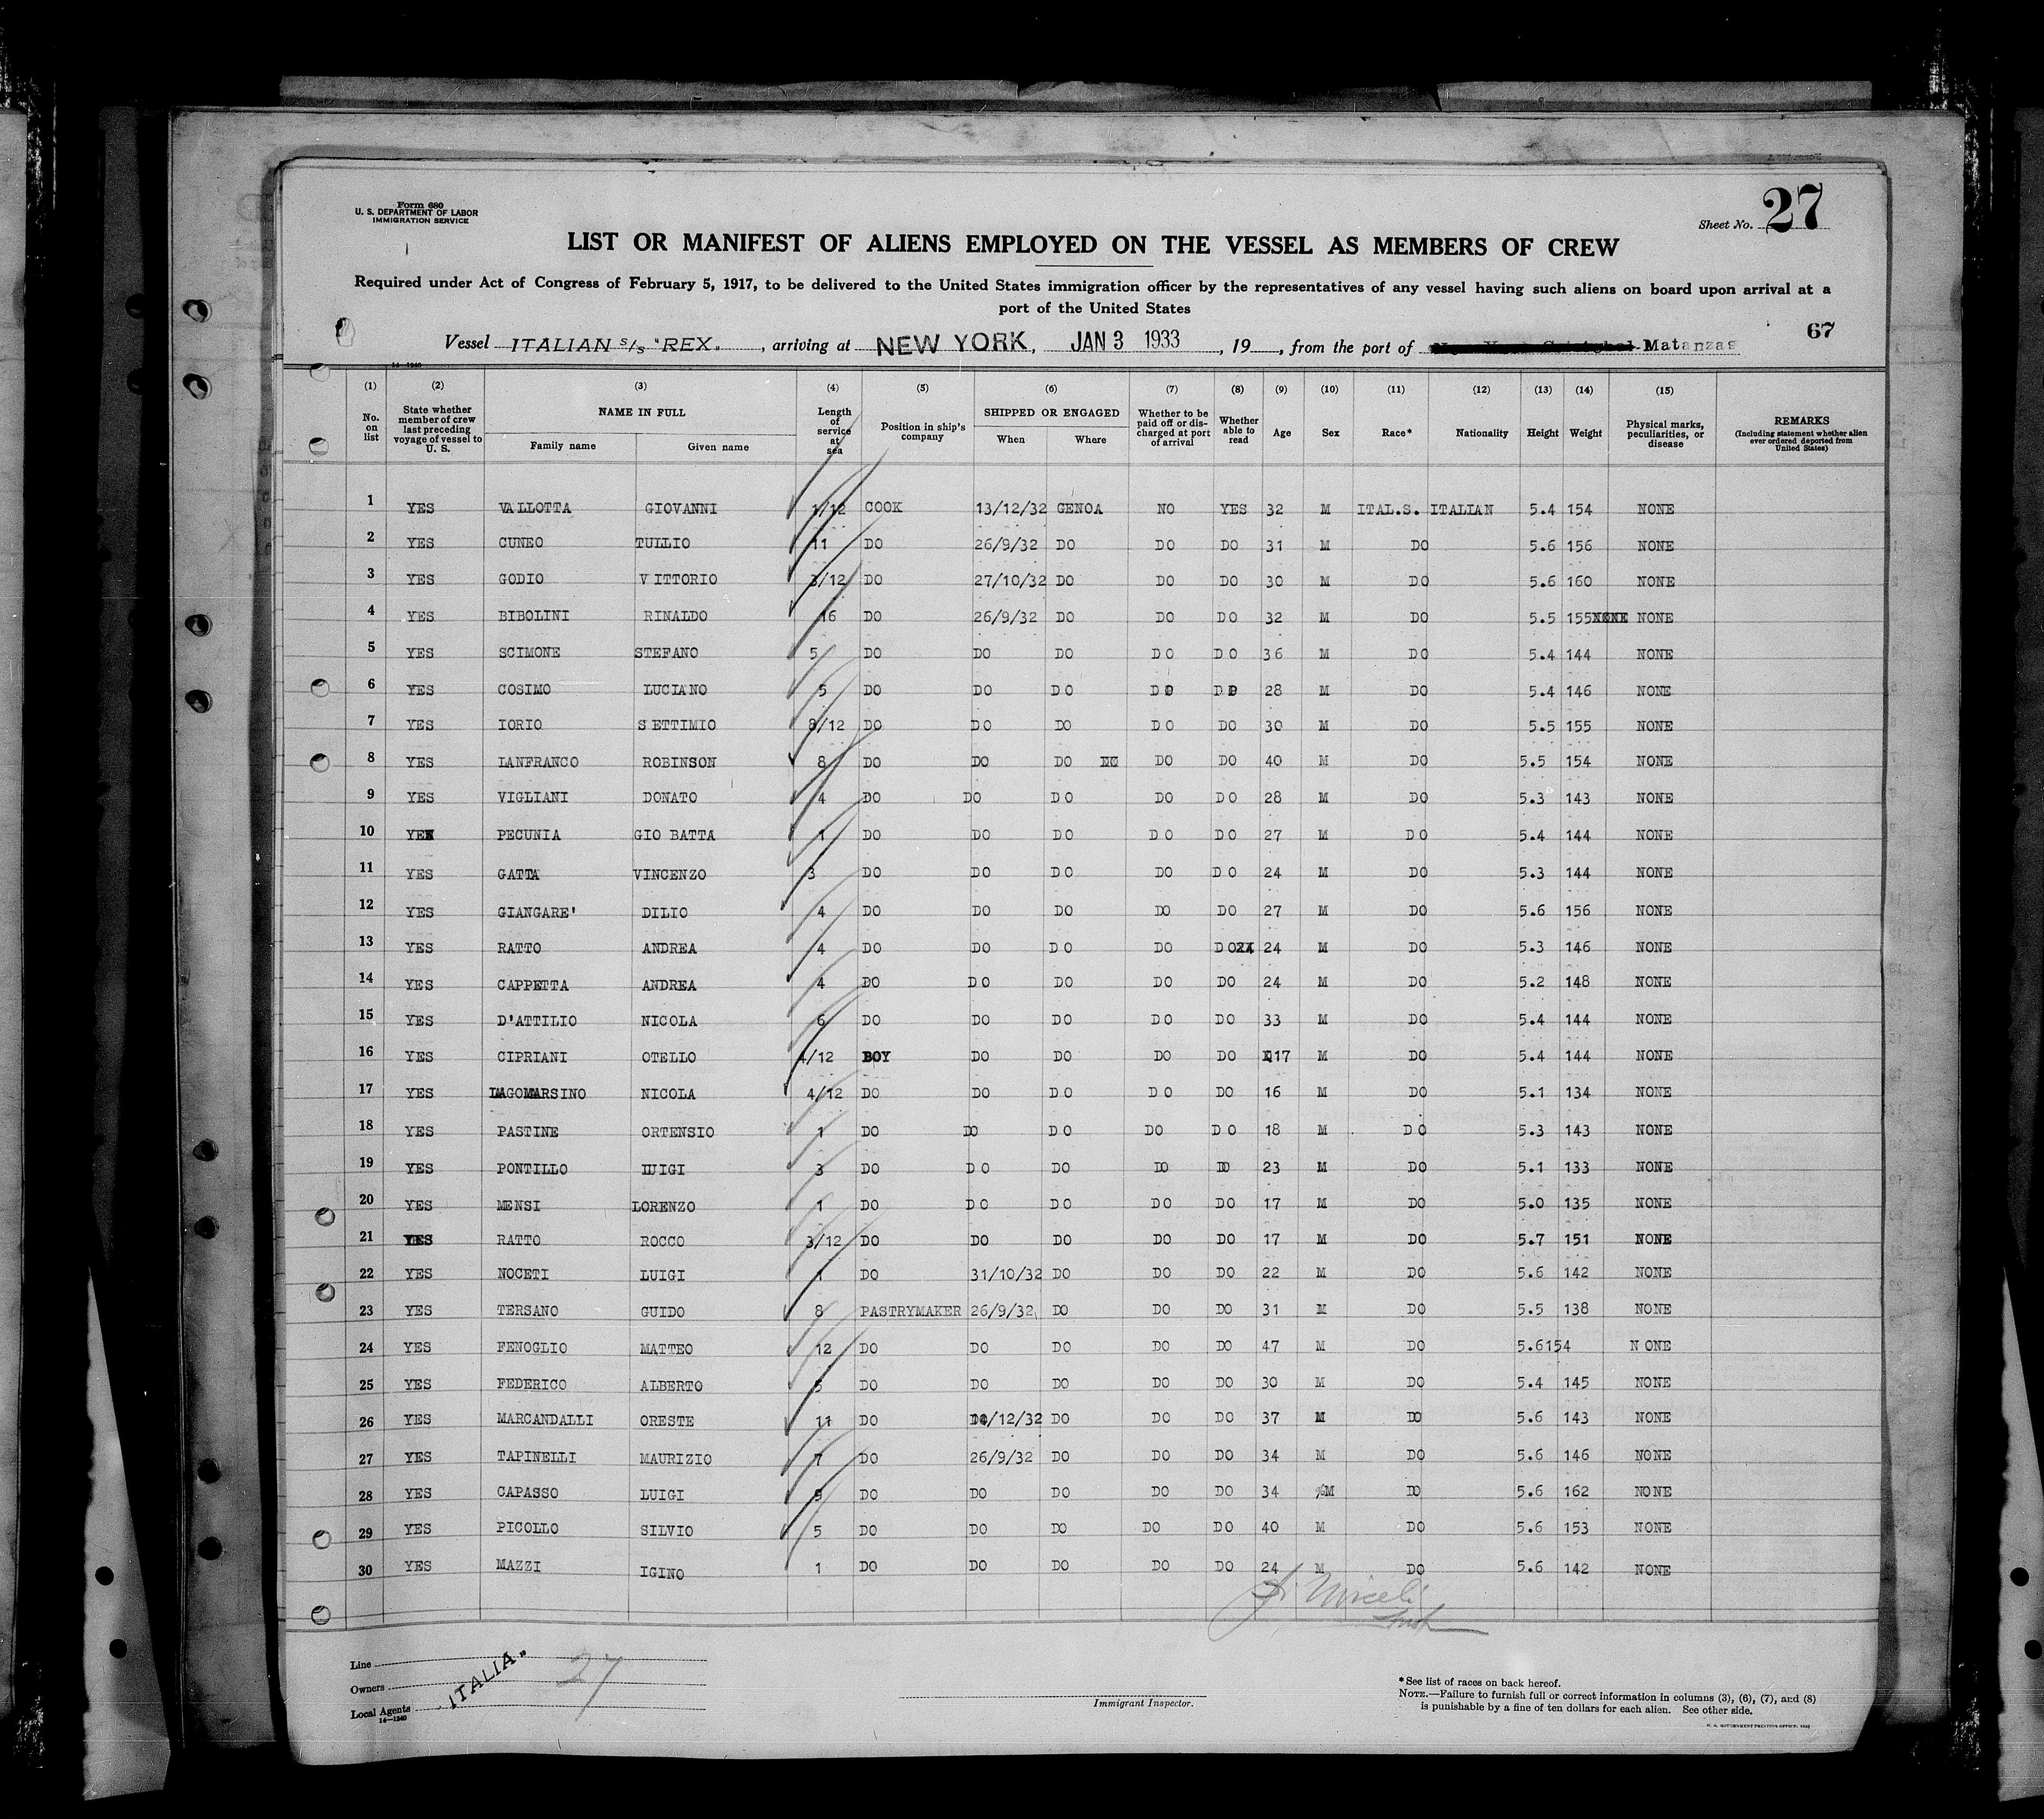 Form 680
U. S. DEPARTMENT OF LABOR
IMMIGRATION SERVICE
Sheet No. 27
LIST OR MANIFEST OF ALIENS EMPLOYED ON THE VESSEL AS MEMBERS OF CREW
Required under Act of Congress of February 5, 1917, to be delivered to the United States immigration officer by the representatives of any vessel having such aliens on board upon arrival at a
port of the United States
67
Vessel ITALIAN S/S "REX", arriving at NEW YORK, JAN 3 1933, 19, from the port of Matanzas
14—1240
(1) (2) (3) (4) (5) (6) (7) (8) (9) (10) (11) (12) (13) (14) (15)
No. on list State whether member of crew last preceding voyage of vessel to U. S. NAME IN FULL Family name Given name Length of service at sea Position in ship's company SHIPPED OR ENGAGED When Where Whether to be paid off or discharged at port of arrival Whether able to read Age Sex Race* Nationality Height Weight Physical marks, peculiarities, or disease REMARKS (Including statement whether alien ever ordered deported from United States)
1 YES VALLOTTA GIOVANNI 1/12 COOK 13/12/32 GENOA NO YES 32 M ITAL.S. ITALIAN 5.4 154 NONE
2 YES CUNEO TULLIO 11 DO 26/9/32 DO DO DO 31 M DO 5.6 156 NONE
3 YES GODIO VITTORIO 3/12 DO 27/10/32 DO DO DO 30 M DO 5.6 160 NONE
4 YES BIBOLINI RINALDO 16 DO 26/9/32 DO DO DO 32 M DO 5.5 155 NONE
5 YES SCIMONE STEFANO 5 DO DO DO DO DO 36 M DO 5.4 144 NONE
6 YES COSIMO LUCIANO 5 DO DO DO DO DO 28 M DO 5.4 146 NONE
7 YES IORIO SETTIMIO 8/12 DO DO DO DO DO 30 M DO 5.5 155 NONE
8 YES LANFRANCO ROBINSON 8 DO DO DO DO DO 40 M DO 5.5 154 NONE
9 YES VIGLIANI DONATO 4 DO DO DO DO DO 28 M DO 5.3 143 NONE
10 YES PECUNIA GIO BATTA 1 DO DO DO DO DO 27 M DO 5.4 144 NONE
11 YES GATTA VINCENZO 3 DO DO DO DO DO 24 M DO 5.3 144 NONE
12 YES GIANGARE' DILIO 4 DO DO DO DO DO 27 M DO 5.6 156 NONE
13 YES RATTO ANDREA 4 DO DO DO DO DO 24 M DO 5.3 146 NONE
14 YES CAPPETTA ANDREA 4 DO DO DO DO DO 24 M DO 5.2 148 NONE
15 YES D'ATTILIO NICOLA 6 DO DO DO DO DO 33 M DO 5.4 144 NONE
16 YES CIPRIANI OTELLO 4/12 BOY DO DO DO DO 17 M DO 5.4 144 NONE
17 YES LAGOMARSINO NICOLA 4/12 DO DO DO DO DO 16 M DO 5.1 134 NONE
18 YES PASTINE ORTENSIO 1 DO DO DO DO DO 18 M DO 5.3 143 NONE
19 YES PONTILLO LUIGI 3 DO DO DO DO DO 23 M DO 5.1 133 NONE
20 YES MENSI LORENZO 1 DO DO DO DO DO 17 M DO 5.0 135 NONE
21 YES RATTO ROCCO 3/12 DO DO DO DO DO 17 M DO 5.7 151 NONE
22 YES NOCETI LUIGI 1 DO 31/10/32 DO DO DO 22 M DO 5.6 142 NONE
23 YES TERSANO GUIDO 8 PASTRYMAKER 26/9/32 DO DO DO 31 M DO 5.5 138 NONE
24 YES FENOGLIO MATTEO 12 DO DO DO DO DO 47 M DO 5.6 154 NONE
25 YES FEDERICO ALBERTO 5 DO DO DO DO DO 30 M DO 5.4 145 NONE
26 YES MARCANDALLI ORESTE 11 DO 14/12/32 DO DO DO 37 M DO 5.6 143 NONE
27 YES TAPINELLI MAURIZIO 7 DO 26/9/32 DO DO DO 34 M DO 5.6 146 NONE
28 YES CAPASSO LUIGI 9 DO DO DO DO DO 34 M DO 5.6 162 NONE
29 YES PICOLLO SILVIO 5 DO DO DO DO DO 40 M DO 5.6 153 NONE
30 YES MAZZI IGINO 1 DO DO DO DO DO 24 M DO 5.6 142 NONE
Line
Owners
Local Agents "ITALIA"
14—1240
27
Immigrant Inspector.
*See list of races on back hereof.
NOTE.—Failure to furnish full or correct information in columns (3), (6), (7), and (8)
is punishable by a fine of ten dollars for each alien. See other side.